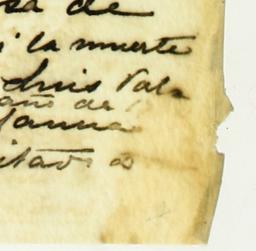 sa de
i la muerte
Luis Vala
año de
Janua
citavo a